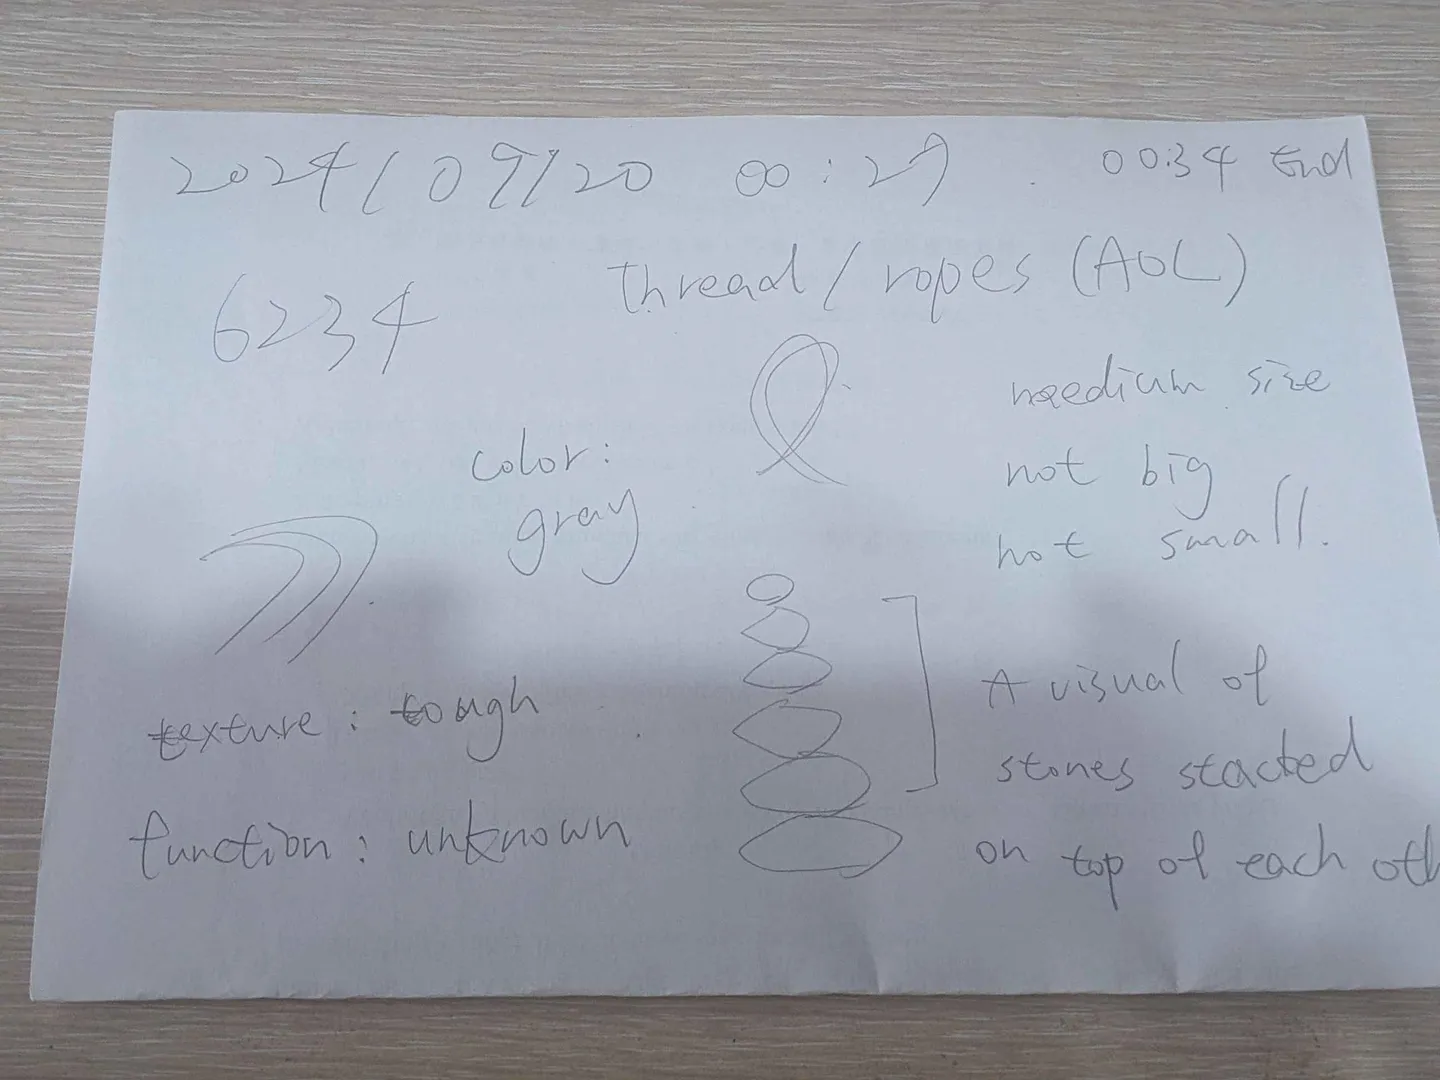 2024/09/20 00:29 0034 End
6234
thread/ropes (AOL)
medium size
not big
not small.
color:
gray
texture: tough
function: unknown
A visual of
stones stacted
on top of each oth